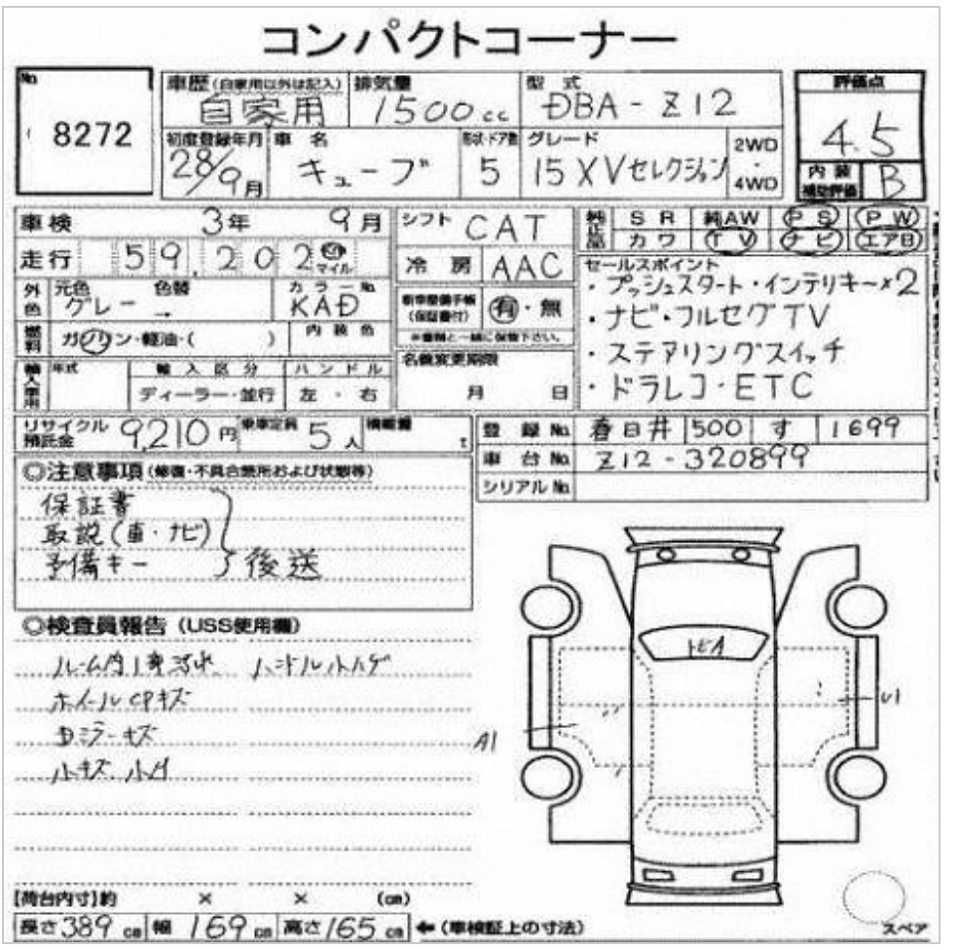 コンパクトコーナー
No. 8272
車歴 (自家用以外は記入) 自家用
排気量 1500cc
型式 DBA-Z12
評価点 4.5
初度登録年月 28/9月
車名 キューブ
形状・ドア数 5
グレード 15XVセレクション
2WD・4WD
内装補助評価 B
車検 3年 9月
シフト CAT
純正品 SR 純AW PS PW
カワ TV ナビ エアB
走行 59,202 マイル
冷房 AAC
セールスポイント
・プッシュスタート・インテリキー×2
・ナビ・フルセグTV
・ステアリングスイッチ
・ドラレコ・ETC
外色 元色 グレー 色替 → カラーNo. KAD
新車整備手帳 (保証書付) 有・無
※書類と一緒に保管下さい。
燃料 ガソリン・軽油・( ) 内装色
名義変更期限 月 日
輸入車用 年式 輸入区分 ディーラー・並行 ハンドル 左・右
リサイクル預託金 9,210円 乗車定員 5人 積載量 t
登録No. 春日井 500 す 1699
車台No. Z12-320899
シリアルNo.
◎注意事項 (修復・不具合箇所および状態等)
保証書
取説(車・ナビ)
予備キー
後送
◎検査員報告 (USS使用欄)
ホイールCPキズ
ドミラーキズ
小キズ 小凹
トビA
A1
U1
【荷台内寸】約 × × (cm)
長さ389cm 幅169cm 高さ165cm ←(車検証上の寸法)
スペア